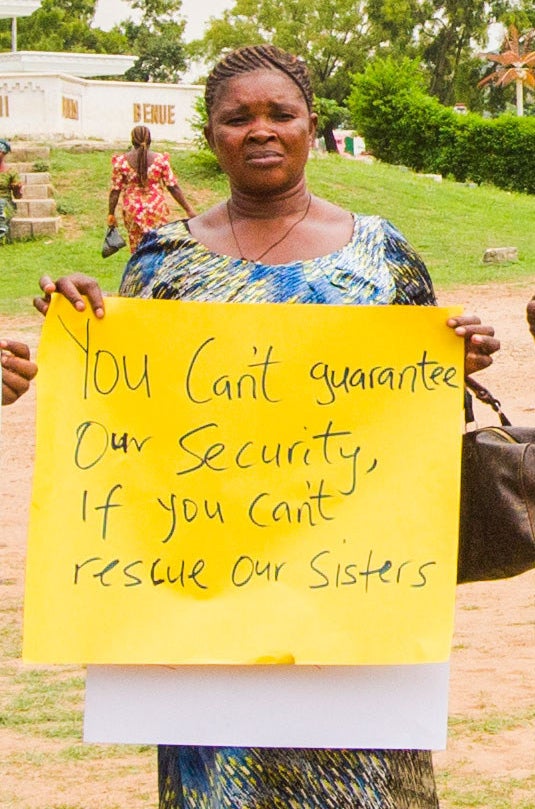 BENUE
You Can't guarantee
Our Security,
If you can't
rescue our sisters